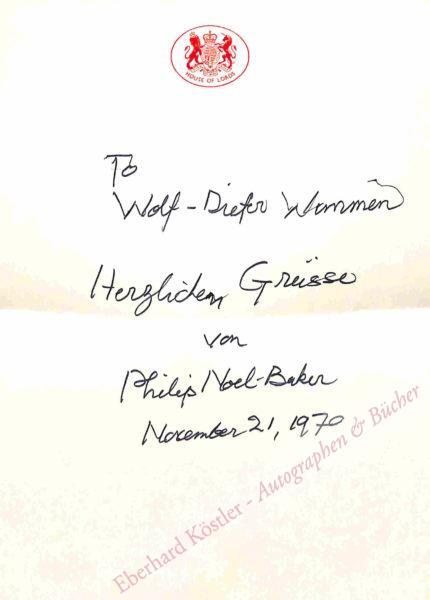 HOUSE OF LORDS
To
Wolf-Dieter
Herzlichen Grüsse
von
Philip Noel-Baker
November 21, 1970
Eberhard Köstler - Autographen & Bücher